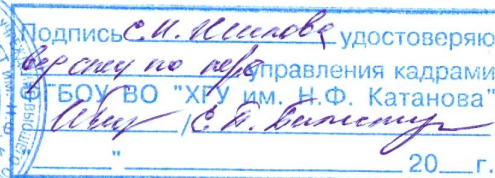 Подпись С.Н. Жилова удостоверяю
вед спец по перс управления кадрами
ФГБОУ ВО "ХГУ им. Н.Ф. Катанова"
/ Е.П.
" 20 г.